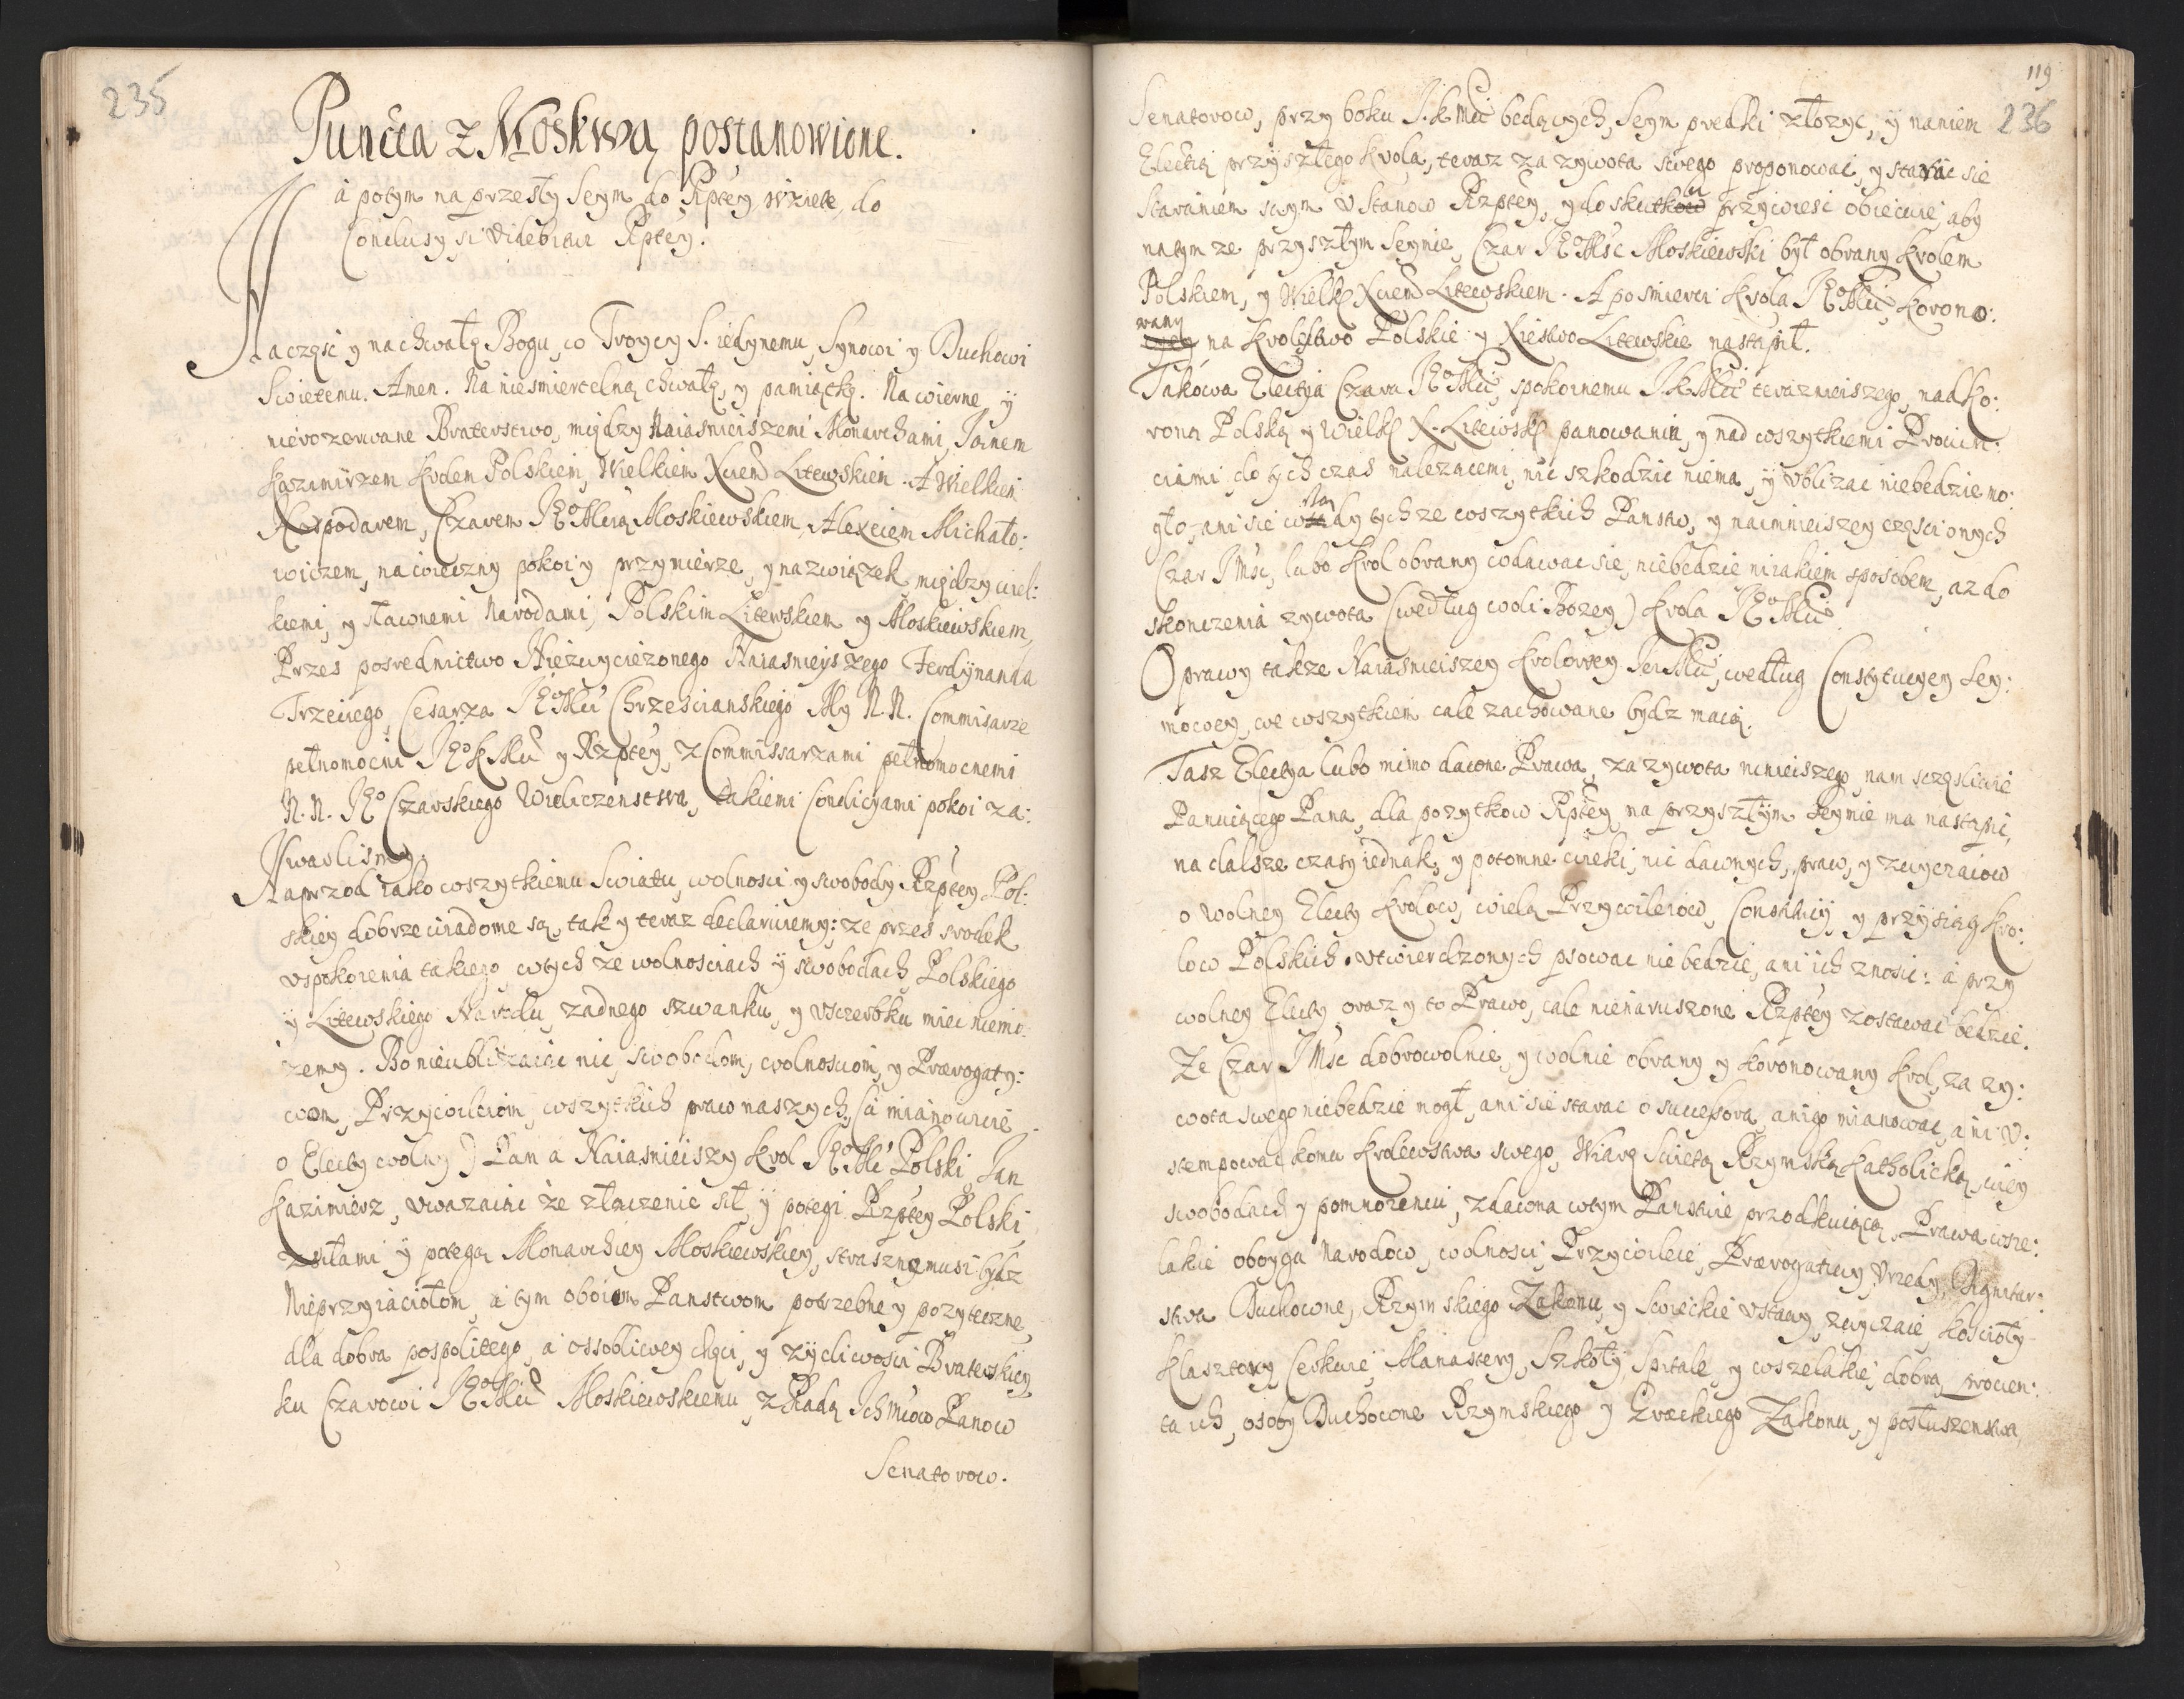 235
Puncta z Moskwą postanowione.
a potym na przeszły Seym do Rptey wziete, do
Conclusy si videbitur Rptey.
Na częsc y na chwałę Bogu, w Troycy S. iedynemu, Synowi y Duchowi
Swietemu. Amen. Na niesmiertelną chwałę, y pamiątkę. Na wierne y
nierozerwane Braterstwo, między Naiasnieiszemi Monarchami, Janem
Kazimirzem Krolem Polskiem, Wielkiem Xciem Litewskiem. A Wielkiem
Hospodarem, Czarem Je° Mcią Moskiewskiem, Alexeiem Michało:
wiczem, na wieczny pokoi y przymierze, y na związek między wiel:
kiemi, y sławnemi Narodami, Polskim Litewskiem y Moskiewskiem,
Przes posrednictwo Niezwycięzonego Naiasnieyszego Ferdynanda
Trzeciego, Cesarza Je° Mci Chrzescianskiego My N. N. Commisarze
pełnomocni Je° K Mci y Rzptey, z Commissarzami pełnomocnemi
N. N. Je° Czarskiego Wieliczenstwa, takiemi Condicyami pokoi za:
warlismy.
Naprzod iako wszytkiemu Swiatu, wolnosci y swobody Rzptey Pol:
skiey dobrze wiadome są, tak y teraz declaruiemy: ze przes srodek
uspokoienia takiego, wtych ze wolnosciach y swobodach, Polskiego
y Litewskiego Narodu, zadnego szwanku, y uszczerbku miec niemo:
zemy. Bo nieubliżaiąc nic, swobodom, wolnosciom, y Prærogaty:
wom, Przywileiom, wszytkich praw naszych, (a mianowicie
o Electy wolny) Pan a Naiasnieiszy Krol Je° Mc Polski, Jan
Kazimierz, uwazaiąc ze złączenie sił, y potegi Rzptey Polski
z siłami y potegą Monarchiey Moskiewskiey, straszne musi bydz
Nieprzyiaciołom, a tym obóiem Panstwom potrzebne y pozyteczne,
dla dobra pospolitego, a ossobliwey chęci, y zyczliwosci Braterskiey,
ku Czarowi Je° Mci Moskiewskiemu, z Radą Ichmciow Panow
Senatorow.
119
236
Senatorow, przy boku J. K Mci będących, Seym predki złozyc, y naniem
Electią przyszłego Krola, teraz za zywota swego proponowac, y starac sie
staraniem swym u Stanow Rzptey, y do skutku przywiesc obiecuie, aby
natym ze przyszłym Seymie, Czar Je° Msc Moskiewski był obrany Krolem
Polskiem, y Wielk. Xciem Litewskiem. A po smierci Krola Je° Mci, korono:
wany na Krolestwo Polskie y Xiestwo Litewskie nastąpił.
Takowa Electia Czara Je° Mci, spokoinemu J K Mci teraznieiszego, nad Ko:
roną Polską y Wielk. X. Litewsk. panowaniu, y nad wszytkiemi Provin:
ciami, do tych czas nalezacemi, nic szkodzic niema, y ublizac niebedzie mo:
gło, ani sie w rządy tych ze wszytkich Panstw, y naimnieiszey częsci onych
Czar J Msc, lubo Krol obrany wdawac sie, niebedzie niiakiem sposobem, az do
skonczenia zywota (według woli Bozey) Krola Je° Mci.
Oprawy takze Naiasnieiszey Krolowey Jei Mci, według Constytucyey Sey:
mowey, we wszytkiem cale zachowane bydz maią.
Tasz Electya lubo mimo dawne Prawa, za zywota ninieiszego, nam sczęsliwie
Panuiącego Pana, dla pozytkow Rptey na przyszłym Seymie ma nastąpic,
na dalsze czasy iednak, y potomne wieki, nic dawnych, praw, y zwyczaiow
o wolney Electy Krolow, wielą Przywileiow, Constitucij, y przysiąg Kro:
low Polskich utwierdzonych psowac nie bedzie, ani ich znosic: a przy
wolney Electy, oraz y to Prawo, cale nienaruszone Rzptey zostawac bedzie.
Ze Czar J Msc dobrowolnie, y wolnie obrany y koronowany Krol, za zy:
wota swego niebedzie mogł, ani sie starac o successora, ani go mianowac, ani u:
stempowac komu Krolewstwa swego, Wiarę Swietą Rzymską Katholicką, wiey
swobodach y pomnozeniu, zdawna wtym Panstwie przodkuiącą, Prawa wsze:
lakie oboyga Narodow, wolnosci, Przywileie, Prærogatiwy, Urzedy, Dignitar:
stwa Duchowne, Rzymskiego Zakonu, y Swieckie ustawy, zwyczaie, kosciöły
Klasztory, Cerkwie, Manastery, Szkoły, Szpitale, y wszelakie dobra, prowen:
ta ich, osoby Duchowne Rzymskiego y Græckiego Zakonu, y posłuszenstwa,